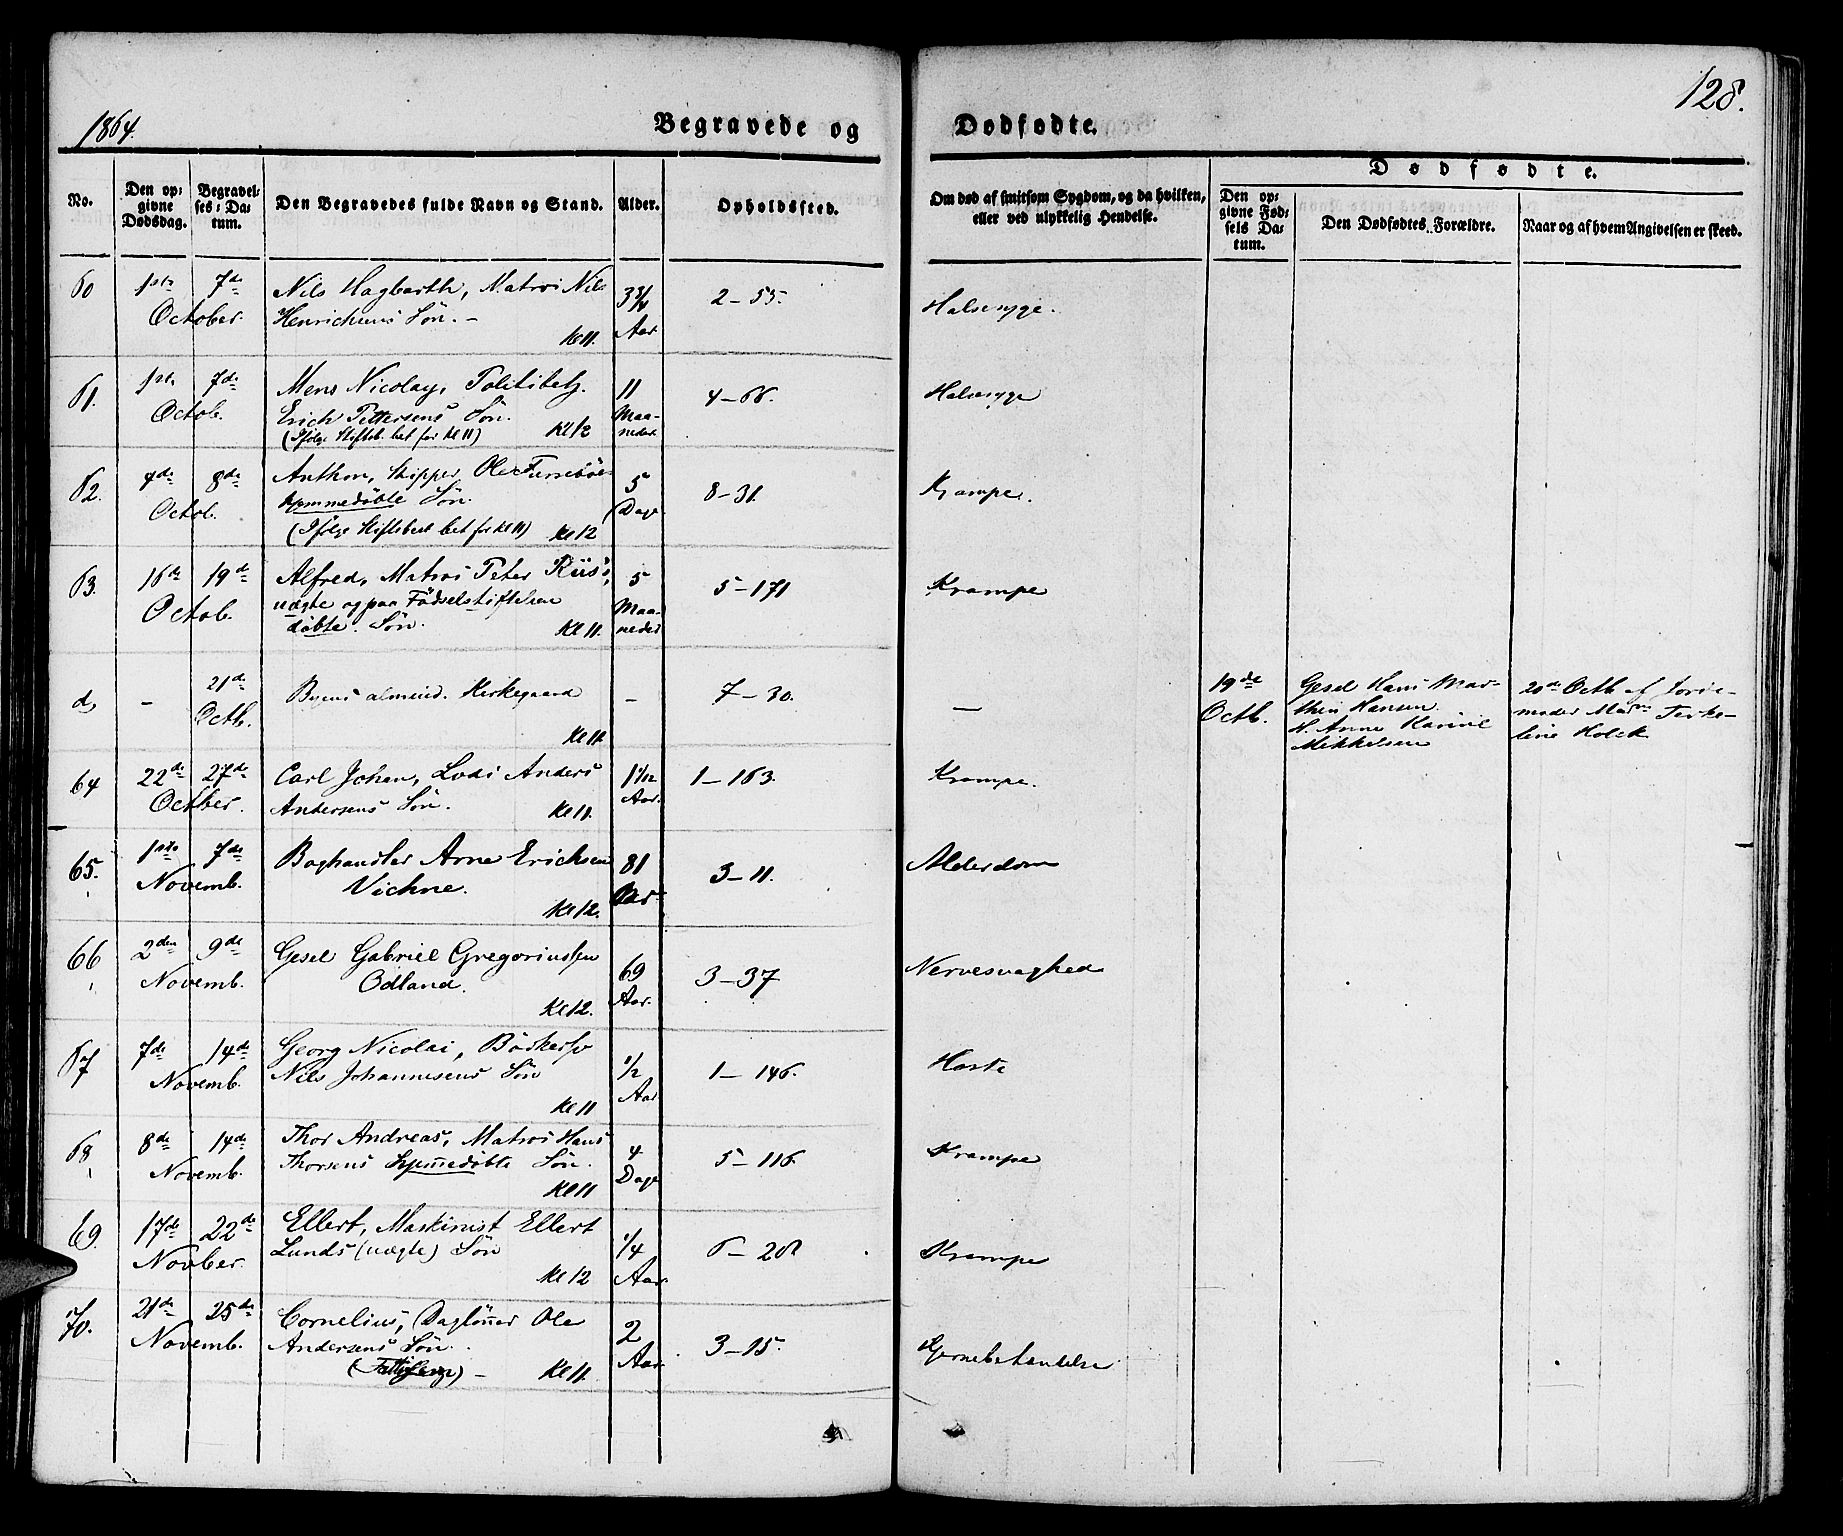 1864.
Begravede og
Dødfødte.
128.
No.
Den op-
givne
Dødsdag.
Begravel-
ses-Da-
tum.
Den Begravedes fulde Navn og Stand.
Alder.
Opholdssted.
Om død af smitsom Sygdom, og da hvilken,
eller ved ulykkelig Hendelse.
Dødfødte.
Den op-
givne Fød-
sels Da-
tum.
Den Dødfødtes Forældre.
Naar og af hvem Angivelsen er skeed.
60 1ste 7de Nils Hagbarth, Matros Nils 3 3/4 2-55. Halssyge.
October. Henrichsens Søn. - Aar
Kl 11.
61. 1ste 7de Mens Nicolay, Politibetj. 11 4-66. Halssyge
Octob. Erich Pettersens Søn. Maa-
(Ifølge Stiftsb. bet for Kl 11) Kl 12 neder
62. 4de 8de Anthon, Skipper Ole 5 8-31. Krampe.
Octob. hjemmedøbte Søn. Dage
(Ifølge Stiftsbest bet for Kl 11) Kl 12
63. 16de 19de Alfred, Matros Peter Riis's, 5 5-171 Krampe
Octob. uægte og paa Fødselstiftelsen Maa-
døbte Søn. Kl 11. neder
d, - 21de Byens almind. Kirkegaard - 7-30. — 19de Gesel Hans Mar- 20de Octb af Jorde-
Octb. Octb. thin Hansen. moder Terke-
Kl 11. H. Anne Karine line Holck
Mikkelsen
64 22de 27de Carl Johan, Lods Anders 1 1/12 1-163. Krampe.
Octber. Andersens Søn. Kl 11. Aar.
65. 1ste 7de Boghandler Arne Erichsen 81 3-11. Alderdom
Novemb. Vichne. Aar
Kl 12.
66 2den 9de Gesel Gabriel Gregoriussen 69 3-37 Nervesvaghed
Novemb. Odland. Aar.
Kl 12.
67 7de 14de Georg Nicolai, Bødkersv 1/2 1-146. Hoste
Novemb. Nils Johannesens Søn Aar
Kl 11
68 8de 14de Thor Andreas, Matros Hans 4 5-116. Krampe
Novemb. Thorsens hjemedøbte Søn. Dage
Kl 11
69. 17de 22de Ellert, Maskinist Ellert 1/4 6-28 Krampe
Novber. Lunds (uægte) Søn Aar
Kl 12
70. 21de 25de Cornelius, Dagløner Ole 2 3-15. Hjernebetændelse
Novemb. Andersens Søn. Aar.
- Kl 11.